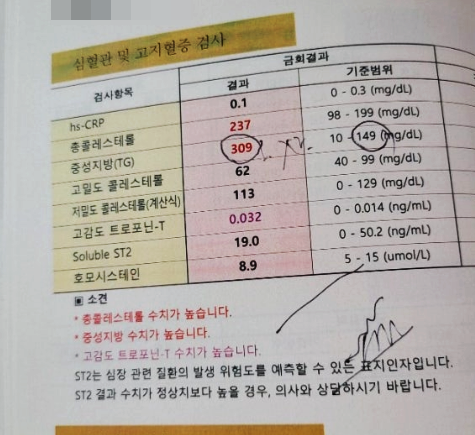 심혈관 및 고지혈증 검사
검사항목 금회결과
결과 기준범위
hs-CRP 0.1 0 - 0.3 (mg/dL)
총콜레스테롤 237 98 - 199 (mg/dL)
중성지방(TG) 309 10 - 149 (mg/dL)
고밀도 콜레스테롤 62 40 - 99 (mg/dL)
저밀도 콜레스테롤(계산식) 113 0 - 129 (mg/dL)
고감도 트로포닌-T 0.032 0 - 0.014 (ng/mL)
Soluble ST2 19.0 0 - 50.2 (ng/mL)
호모시스테인 8.9 5 - 15 (umol/L)
▣ 소견
* 총콜레스테롤 수치가 높습니다.
* 중성지방 수치가 높습니다.
* 고감도 트로포닌-T 수치가 높습니다.
ST2는 심장 관련 질환의 발생 위험도를 예측할 수 있는 표지인자입니다.
ST2 결과 수치가 정상치보다 높을 경우, 의사와 상담하시기 바랍니다.